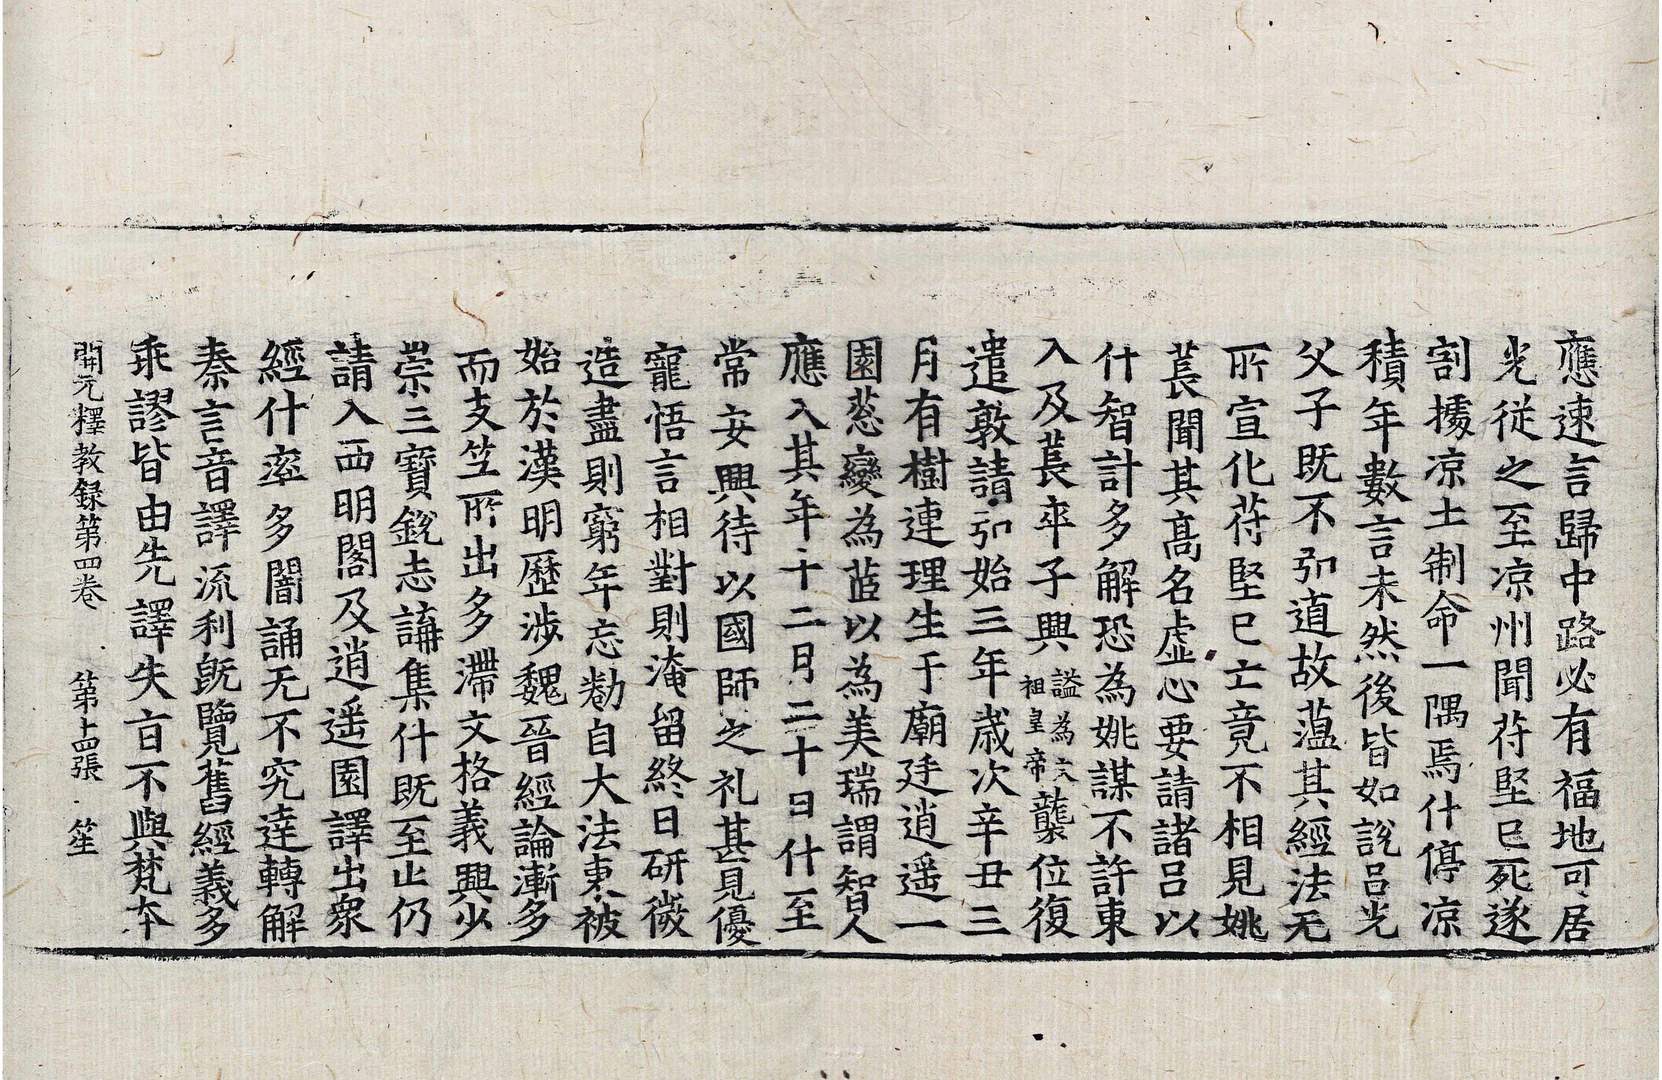 應速言歸中路必有福地可居
光從之至涼州聞苻堅已死遂
割據涼土制命一隅焉什停涼
積年數言未然後皆如說呂光
父子既不弘道故蘊其經法无
所宣化苻堅已亡竟不相見姚
萇聞其高名虛心要請諸呂以
什智計多解恐為姚謀不許東
入及萇卒子興謚為文祖皇帝襲位復
遣敦請弘始三年歲次辛丑三
月有樹連理生于廟廷逍遥一
園葱變為茝以為美瑞謂智人
應入其年十二月二十日什至
常安興待以國師之礼甚見優
寵悟言相對則淹留終日研微
造盡則窮年忘勌自大法東被
始於漢明歷涉魏晉經論漸多
而支竺所出多滯文格義興少
崇三寶銳志講集什既至止仍
請入西明閣及逍遥園譯出衆
經什率多闇誦无不究達轉解
秦言音譯流利既覽舊經義多
乖謬皆由先譯失旨不與梵本
開元釋教録第四卷 第十四張 笙